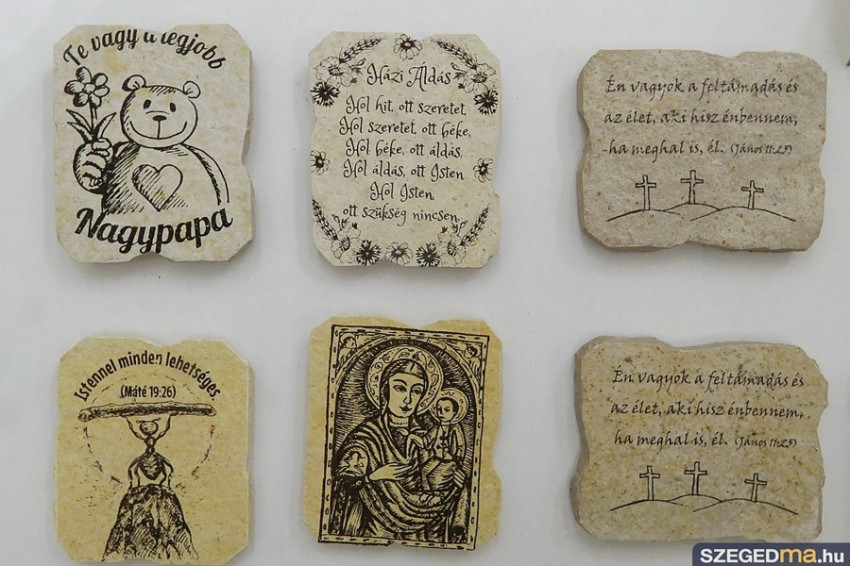 Te vagy a legjobb
Nagypapa
Házi Áldás
Hol hit, ott szeretet,
Hol szeretet, ott béke,
Hol béke, ott áldás,
Hol áldás, ott Isten
Hol Isten
ott szükség nincsen.
Én vagyok a feltámadás és
az élet, aki hisz énbennem,
ha meghal is, él. (János 11:25)
Istennel minden lehetséges
(Máté 19:26)
Én vagyok a feltámadás és
az élet, aki hisz énbennem,
ha meghal is, él. (János 11:25)
SZEGEDma.hu